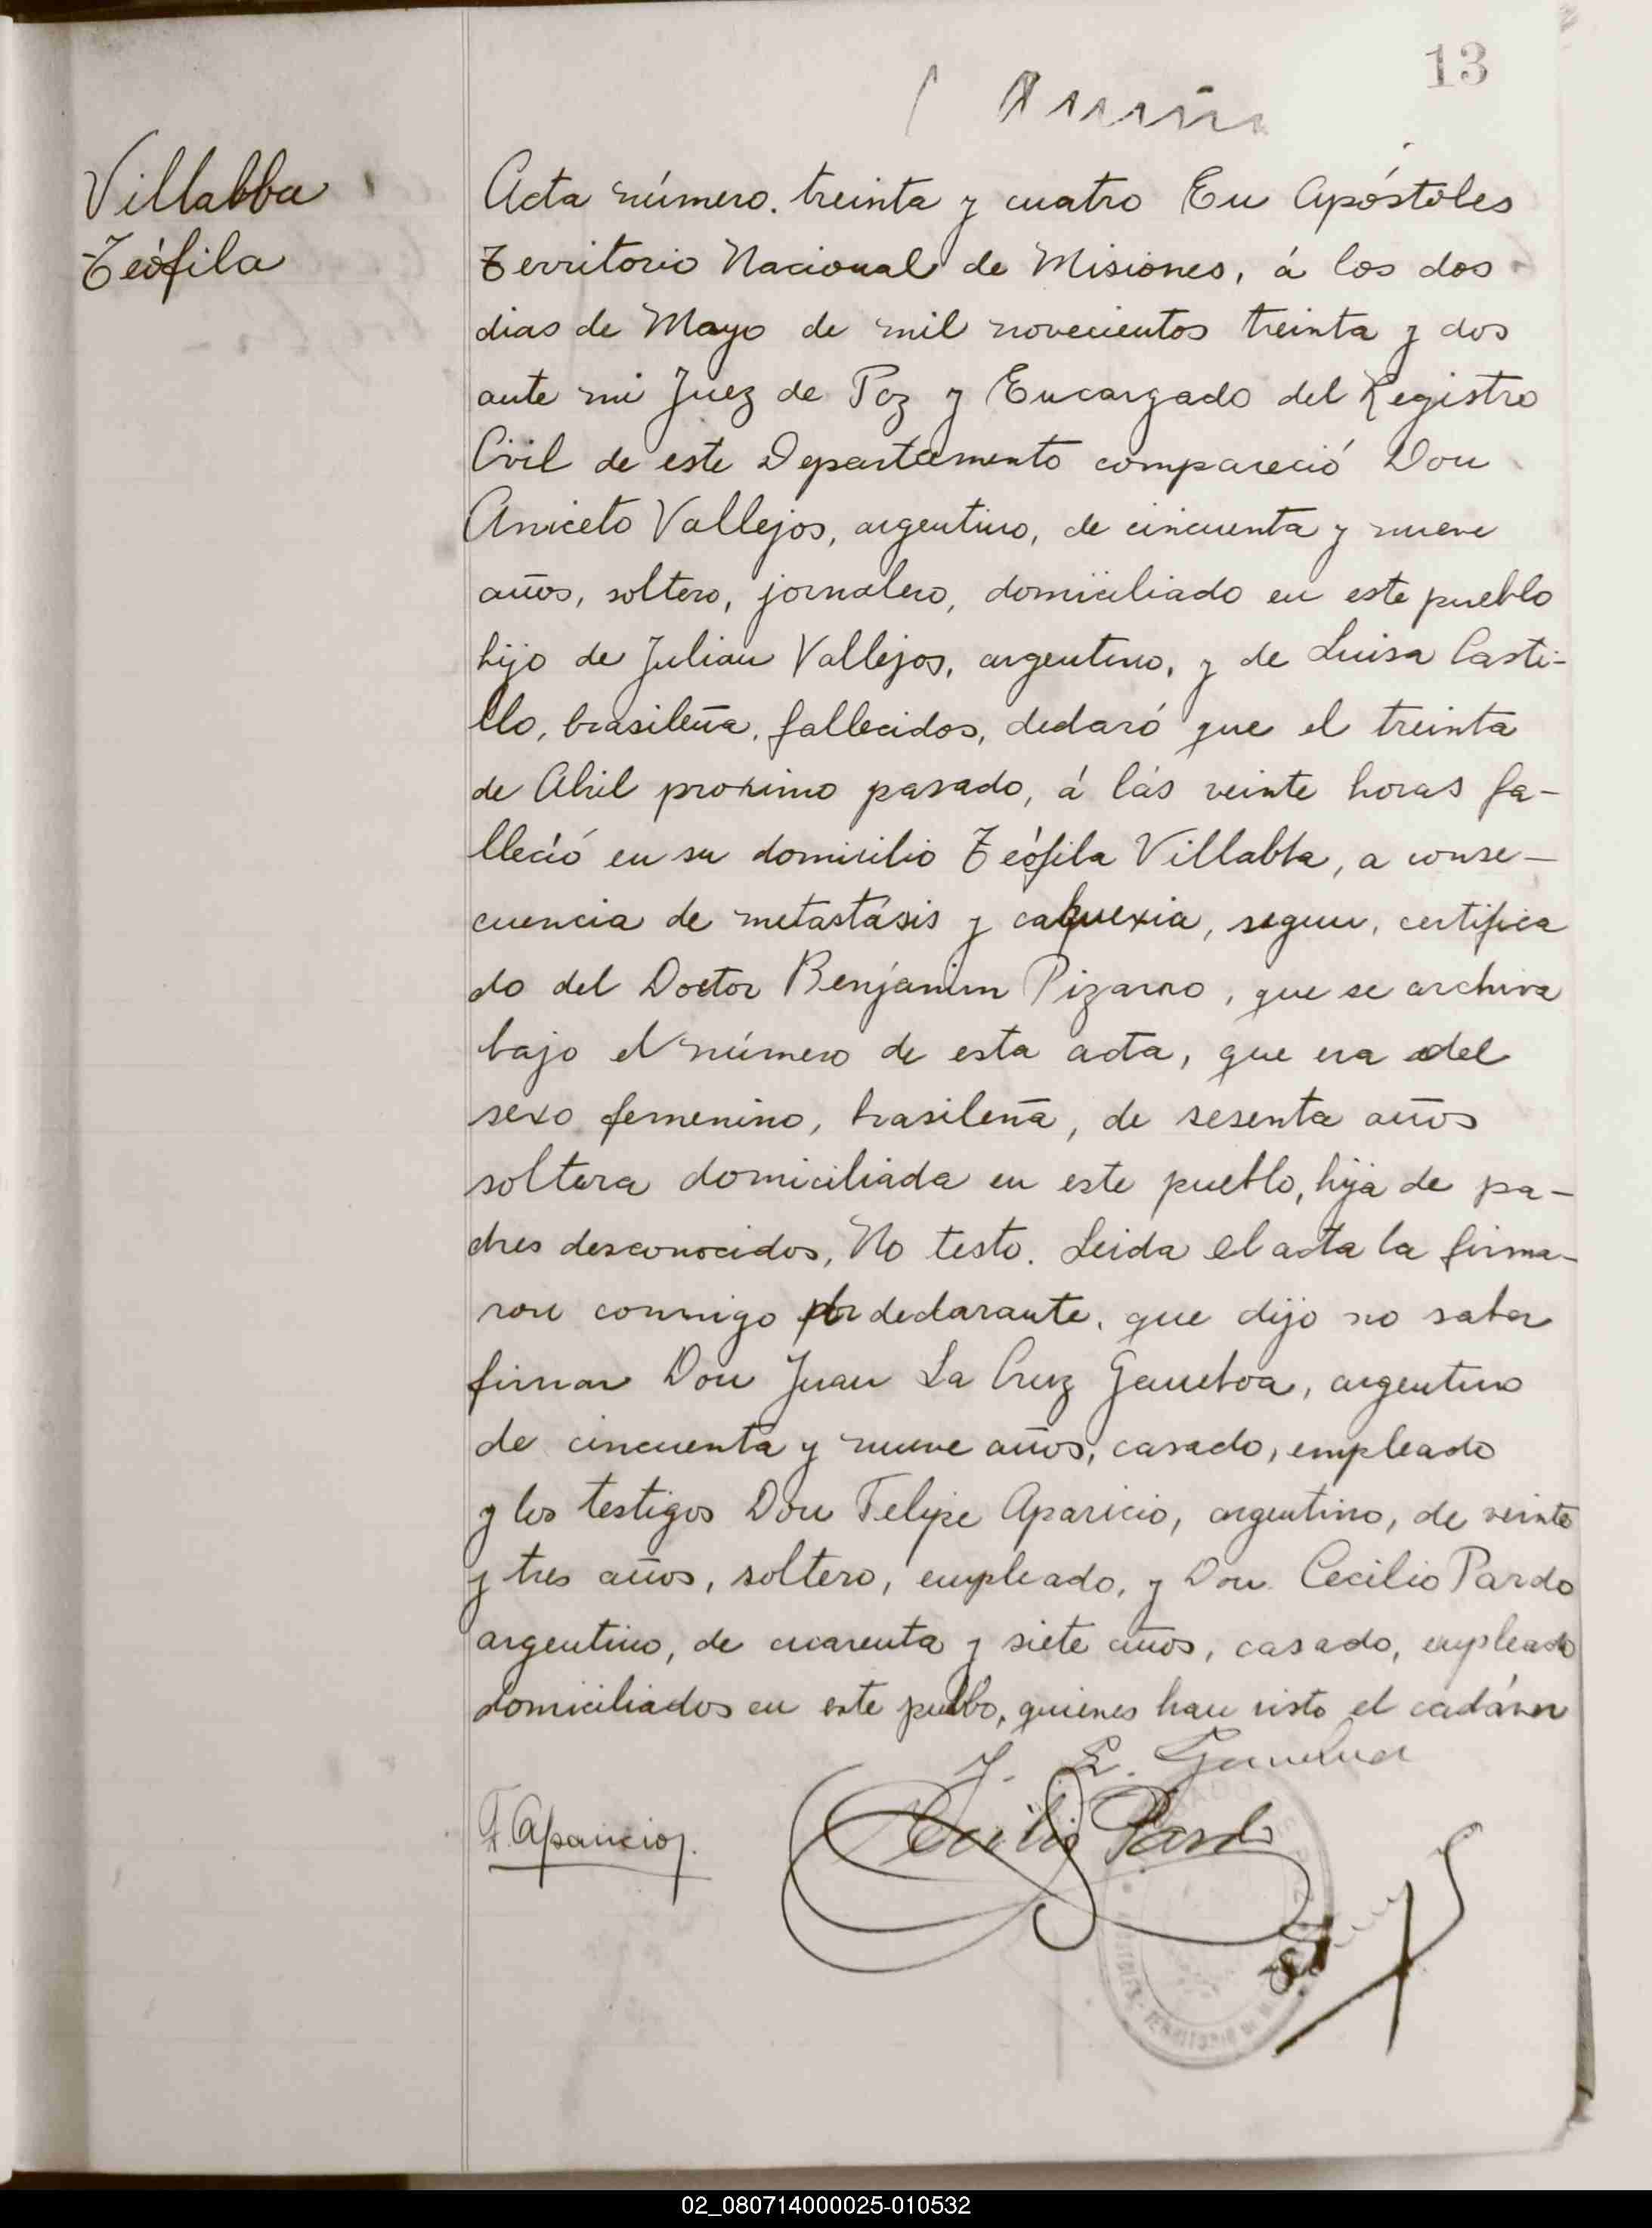 13
Villabba
Teófila
Acta número. treinta y cuatro En Apóstoles
Territorio Nacional de Misiones, á los dos
dias de Mayo de mil novecientos treinta y dos
ante mi Juez de Paz y Encargado del Registro
Civil de este Departamento compareció Don
Aniceto Vallejos, argentino, de cincuenta y nueve
años, soltero, jornalero, domiciliado en este pueblo
hijo de Julian Vallejos, argentino, y de Luisa Casti-
llo, brasileña, fallecidos, declaró que el treinta
de Abril proximo pasado, á las veinte horas fa-
lleció en su domicilio Teófila Villabba, a conse-
cuencia de metastásis y caquexia, segun, certifica
do del Doctor Benjamin Pizarro, que se archiva
bajo el número de esta acta, que era del
sexo femenino, brasileña, de sesenta años
soltera domiciliada en este pueblo, hija de pa-
dres desconocidos, No testo. Leida el acta la firma-
ron conmigo por declarante, que dijo no saber
firmar Don Juan La Cruz Gamboa, argentino
de cincuenta y nueve años, casado, empleado
y los testigos Don Felipe Aparicio, argentino, de veinte
y tres años, soltero, empleado, y Don Cecilio Pardo
argentino, de cuarenta y siete años, casado, empleado
domiciliados en este pueblo, quienes han visto el cadáver
J. L. Gamboa
F. Aparicio
Cecilio Pardo
02_080714000025-010532